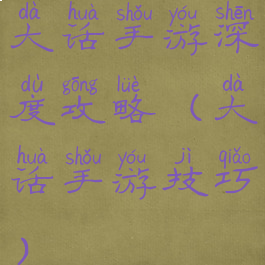 dà huà shǒu yóu shēn
大话手游深
dù gōng lüè dà
度攻略（大
huà shǒu yóu jì qiǎo
话手游技巧
）